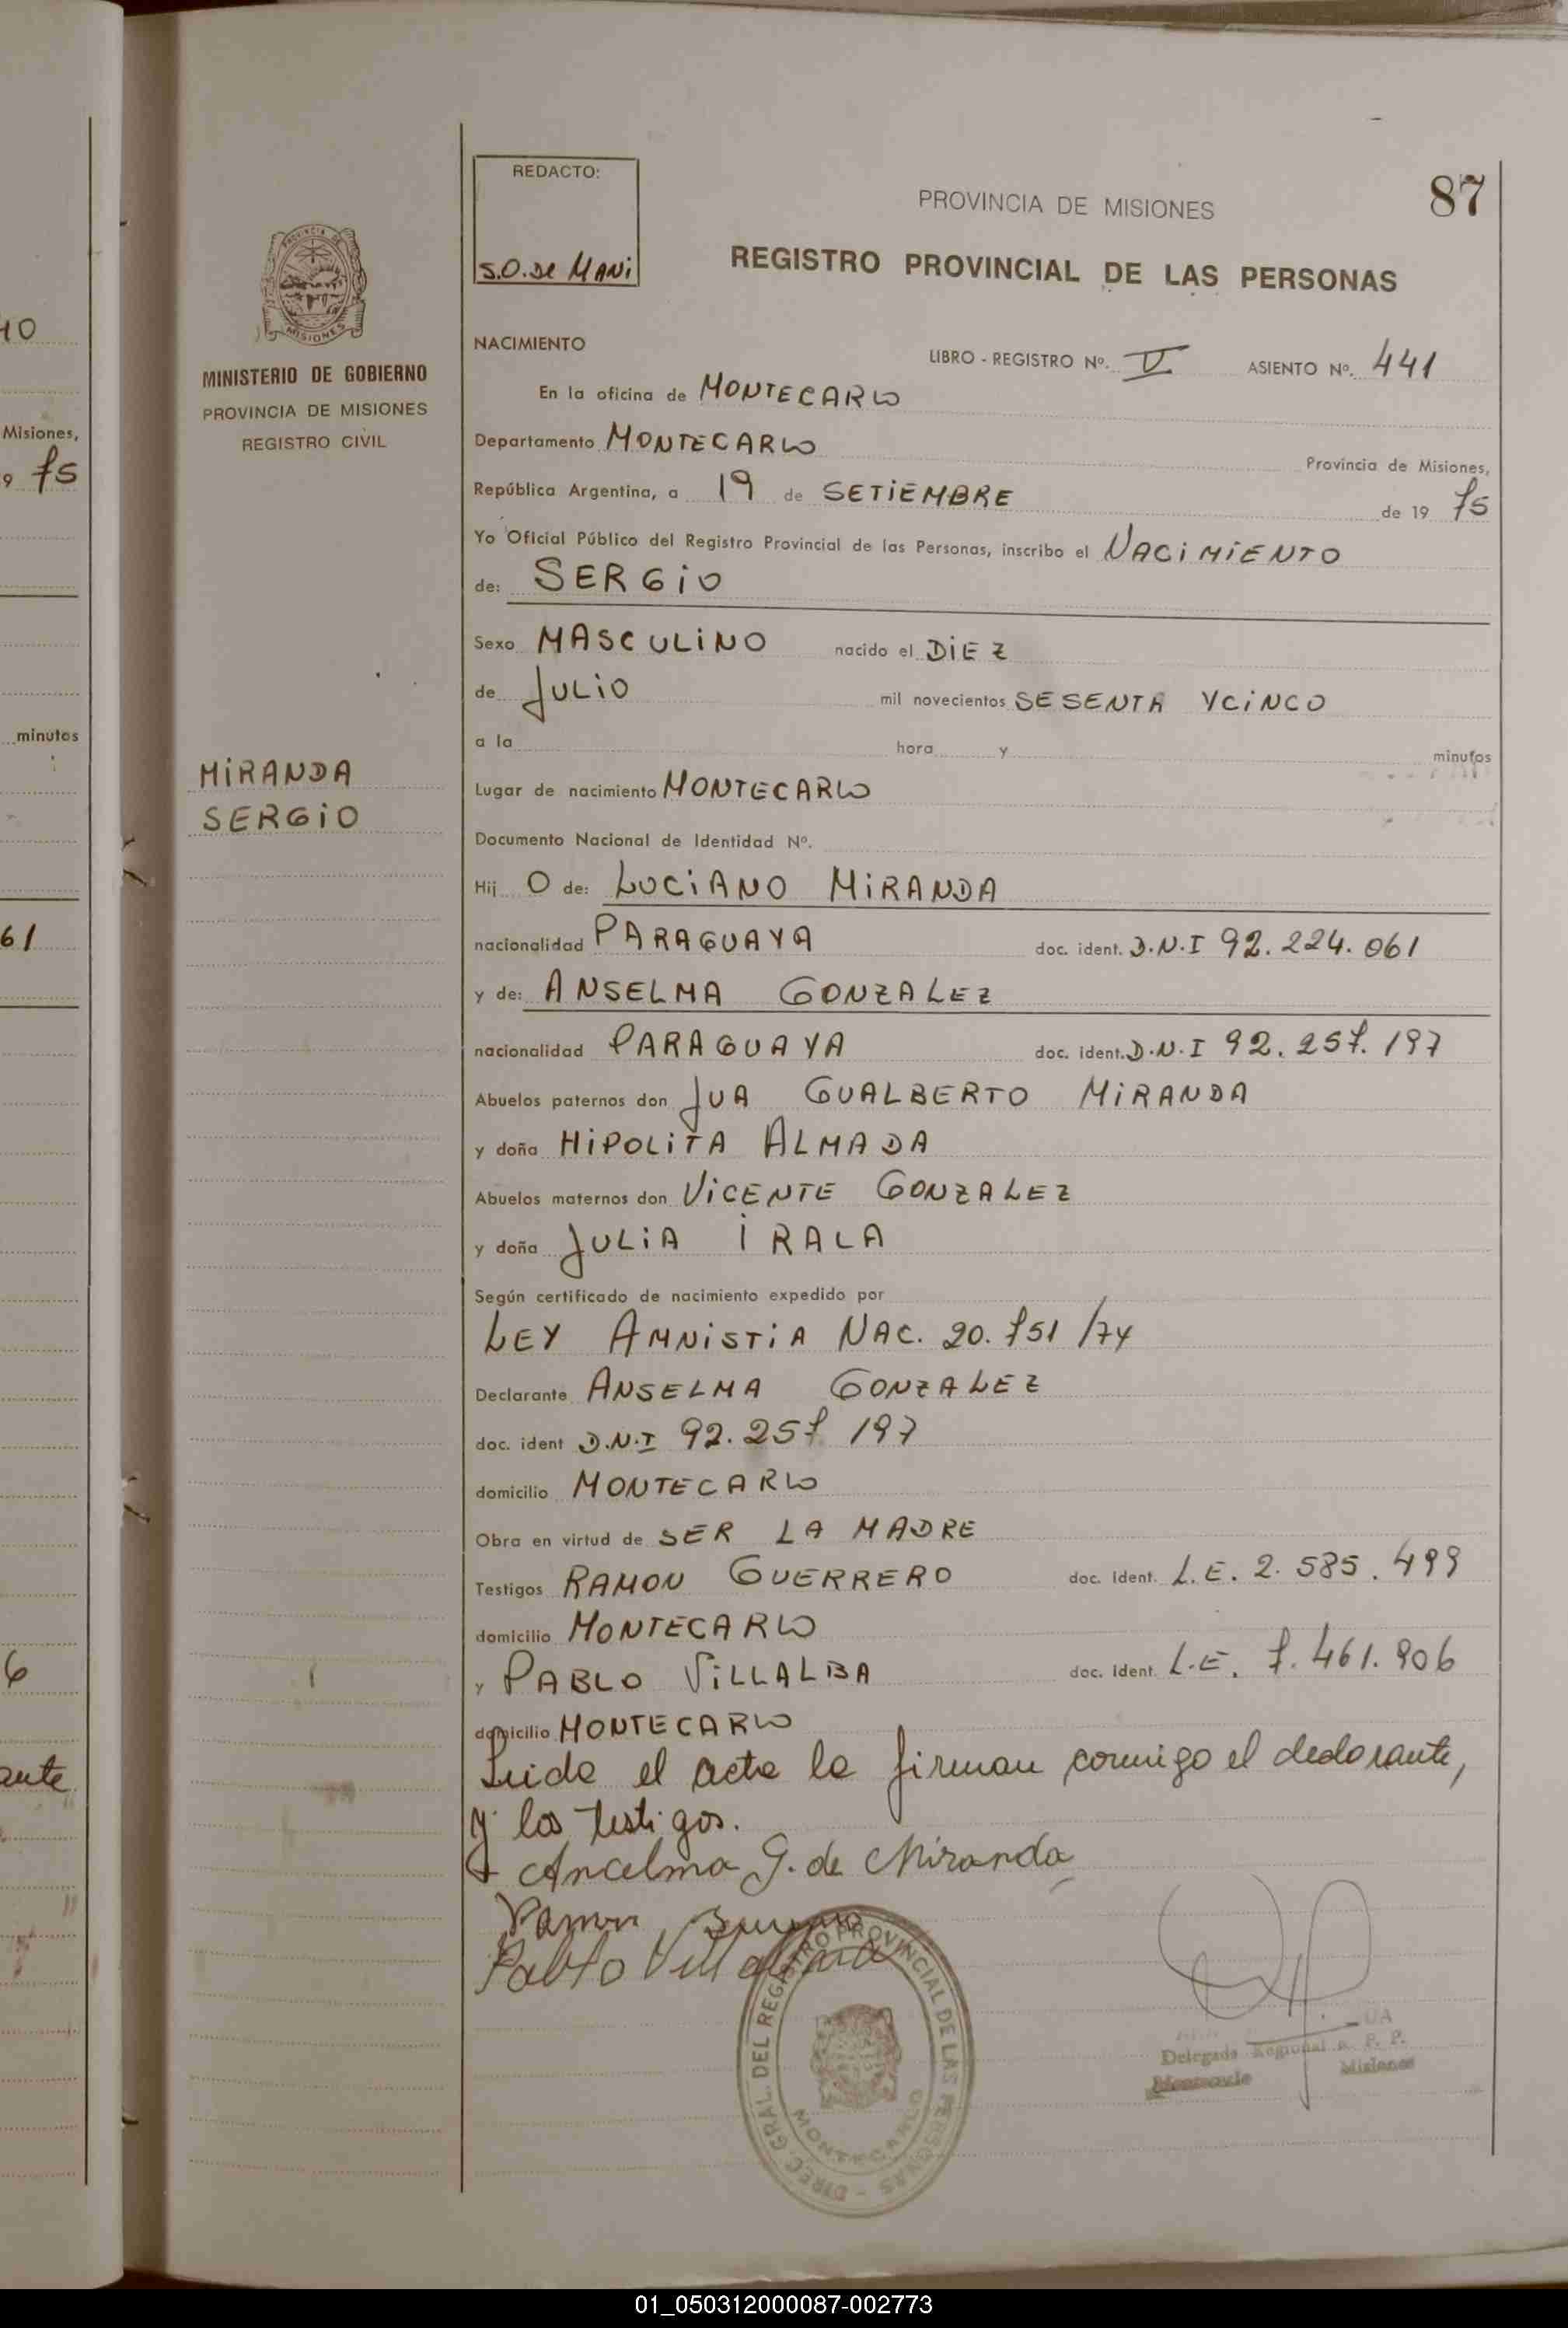 10
Misiones,
9 75
minutos
61
6
ante
PROVINCIA DE
MISIONES
MINISTERIO DE GOBIERNO
PROVINCIA DE MISIONES
REGISTRO CIVIL
MIRANDA
SERGIO
REDACTO:
S.O. DE MANI
87
PROVINCIA DE MISIONES
REGISTRO PROVINCIAL DE LAS PERSONAS
NACIMIENTO
LIBRO - REGISTRO Nº. V ASIENTO Nº. 441
En la oficina de MONTECARLO
Departamento MONTECARLO Provincia de Misiones,
República Argentina, a 19 de SETIEMBRE de 19 75
Yo Oficial Público del Registro Provincial de las Personas, inscribo el NACIMIENTO
de: SERGIO
Sexo MASCULINO nacido el DIEZ
de JULIO mil novecientos SESENTA Y CINCO
a la hora y minutos
Lugar de nacimiento MONTECARLO
Documento Nacional de Identidad Nº.
Hij O de: LUCIANO MIRANDA
nacionalidad PARAGUAYA doc. ident. D.N.I 92.224.061
y de: ANSELMA GONZALEZ
nacionalidad PARAGUAYA doc. ident. D.N.I 92.257.197
Abuelos paternos don JUA GUALBERTO MIRANDA
y doña HIPOLITA ALMADA
Abuelos maternos don VICENTE GONZALEZ
y doña JULIA IRALA
Según certificado de nacimiento expedido por
LEY AMNISTIA NAC. 20.751/74
Declarante ANSELMA GONZALEZ
doc. ident D.N.I 92.257 197
domicilio MONTECARLO
Obra en virtud de SER LA MADRE
Testigos RAMON GUERRERO doc. ident. L.E. 2.585.499
domicilio MONTECARLO
y PABLO VILLALBA doc. ident. L.E. 7.461.906
domicilio MONTECARLO
Leida el acta la firman conmigo el declarante,
y los testigos.
Ancelma G. de Miranda
Ramon
Pablo Villalba
DIREC. GRAL. DEL REGISTRO PROVINCIAL DE LAS PERSONAS
MONTECARLO
UA
Delegado Regional R. P. P.
Misiones
01_050312000087-002773